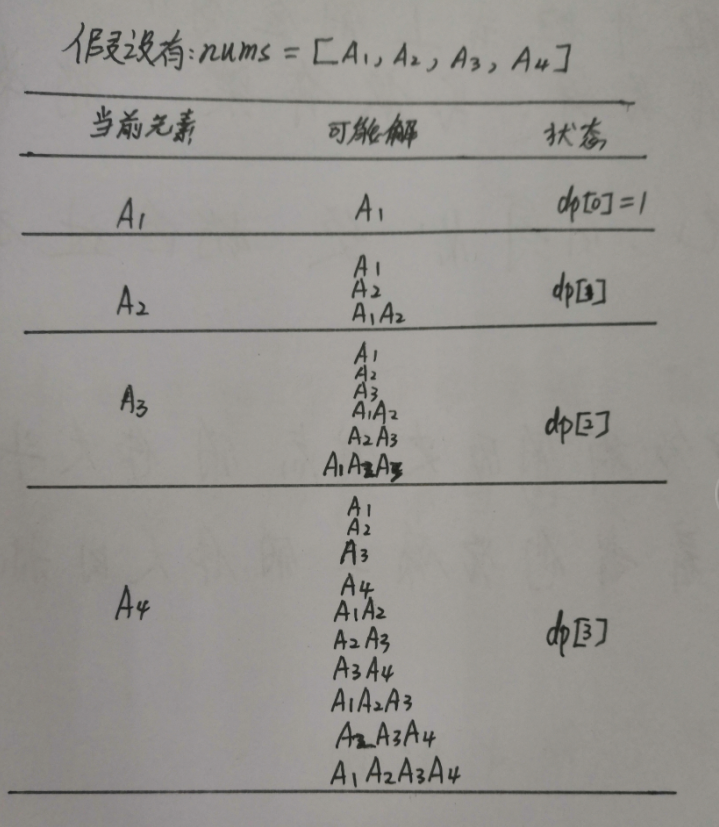 假设有:nums = [A₁, A₂, A₃, A₄]
当前元素 可能解 状态
A₁ A₁ dp[0]=1
A₁
A₂
A₂ A₁A₂ dp[1]
A₁
A₂
A₃
A₃ A₁A₂ dp[2]
A₂A₃
A₁A₂A₃
A₁
A₂
A₃
A₄
A₄ A₁A₂ dp[3]
A₂A₃
A₃A₄
A₁A₂A₃
A₂A₃A₄
A₁A₂A₃A₄